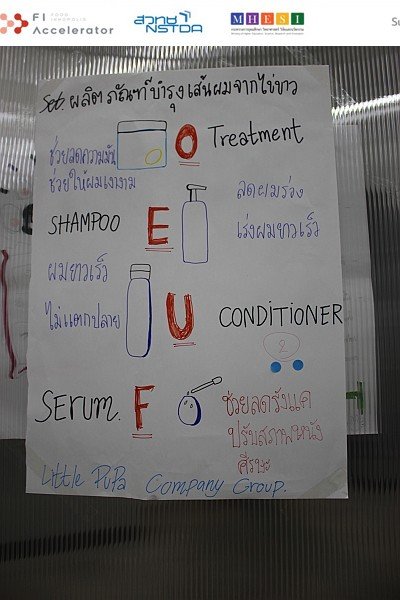 FI FOOD INNOPOLIS
Accelerator
สวทช
NSTDA
MHESI
Su
Set ผลิตภัณฑ์บำรุงเส้นผมจากไข่ขาว
O Treatment
ช่วยลดความมัน
ช่วยให้ผมเงางาม
SHAMPOO E
ลดผมร่วง
เร่งผมยาวเร็ว
ผมยาวเร็ว
ไม่แตกปลาย
U CONDITIONER
2
SERUM. F
ช่วยลดรังแค
ปรับสภาพหนัง
ศีรษะ
Little PuPa Company Group.